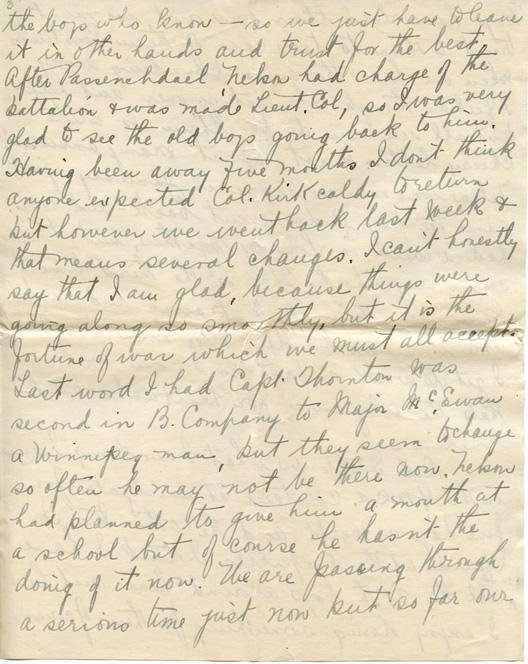 3
the boys who know — so we just have to leave
it in other hands and trust for the best.
After Passenchdael, Nelson had charge of the
battalion & was made Lieut. Col, so I was very
glad to see the old boys going back to him.
Having been away five months I don't think
anyone expected Col. Kirkcaldy to return
but however we went back last week &
that means several changes. I can't honestly
say that I am glad, because things were
going along so smoothly, but it is the
fortune of war which we must all accept.
Last word I had Capt. Thornton was
second in B. Company to Major McEwan
a Winnipeg man, but they seem to change
so often he may not be there now. Nelson
had planned to give him a month at
a school but of course he hasn't the
doing of it now. We are passing through
a serious time just now but so far our